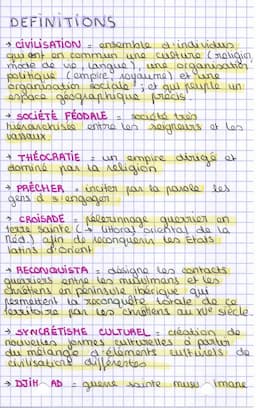 DEFINITIONS
→ CIVILISATION = ensemble d'individus
qui ont en commun une culture (religion,
mode de vie, langue), une organisation
politique (empire, royaume) et une
organisation sociale, et qui peuple un
espace géographique précis.
→ SOCIÉTÉ FÉODALE = société très
hiérarchisée entre les seigneurs et les
vassaux
→ THÉOCRATIE = un empire dirigé et
dominé par la religion
→ PRÊCHER = inciter par la parole les
gens à s'engager
→ CROISADE = pélerinnage guerrier en
terre sainte (→ littoral oriental de la
Méd.) afin de reconquérir les Etats
latins d'orient
→ RECONQUISTA = désigne les contacts
guerriers entre les musulmans et les
chrétiens en péninsule ibérique qui
permettent la reconquête totale de ce
territoire par les chrétiens au XVe siècle.
→ SYNCRÉTISME CULTUREL = création de
nouvelles formes culturelles à partir
du mélange d'éléments culturels de
civilisations différentes
→ DJIHAD = guerre sainte musulmane